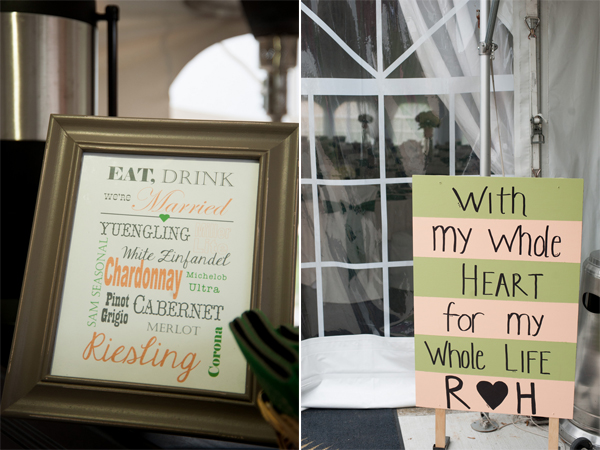 EAT, DRINK
we're Married
YUENGLING
White Zinfandel
SAM SEASONAL
Chardonnay
Michelob
Ultra
Pinot
Grigio
CABERNET
MERLOT
Corona
Riesling
With
my Whole
HEART
for my
Whole LIFE
R ♥ H